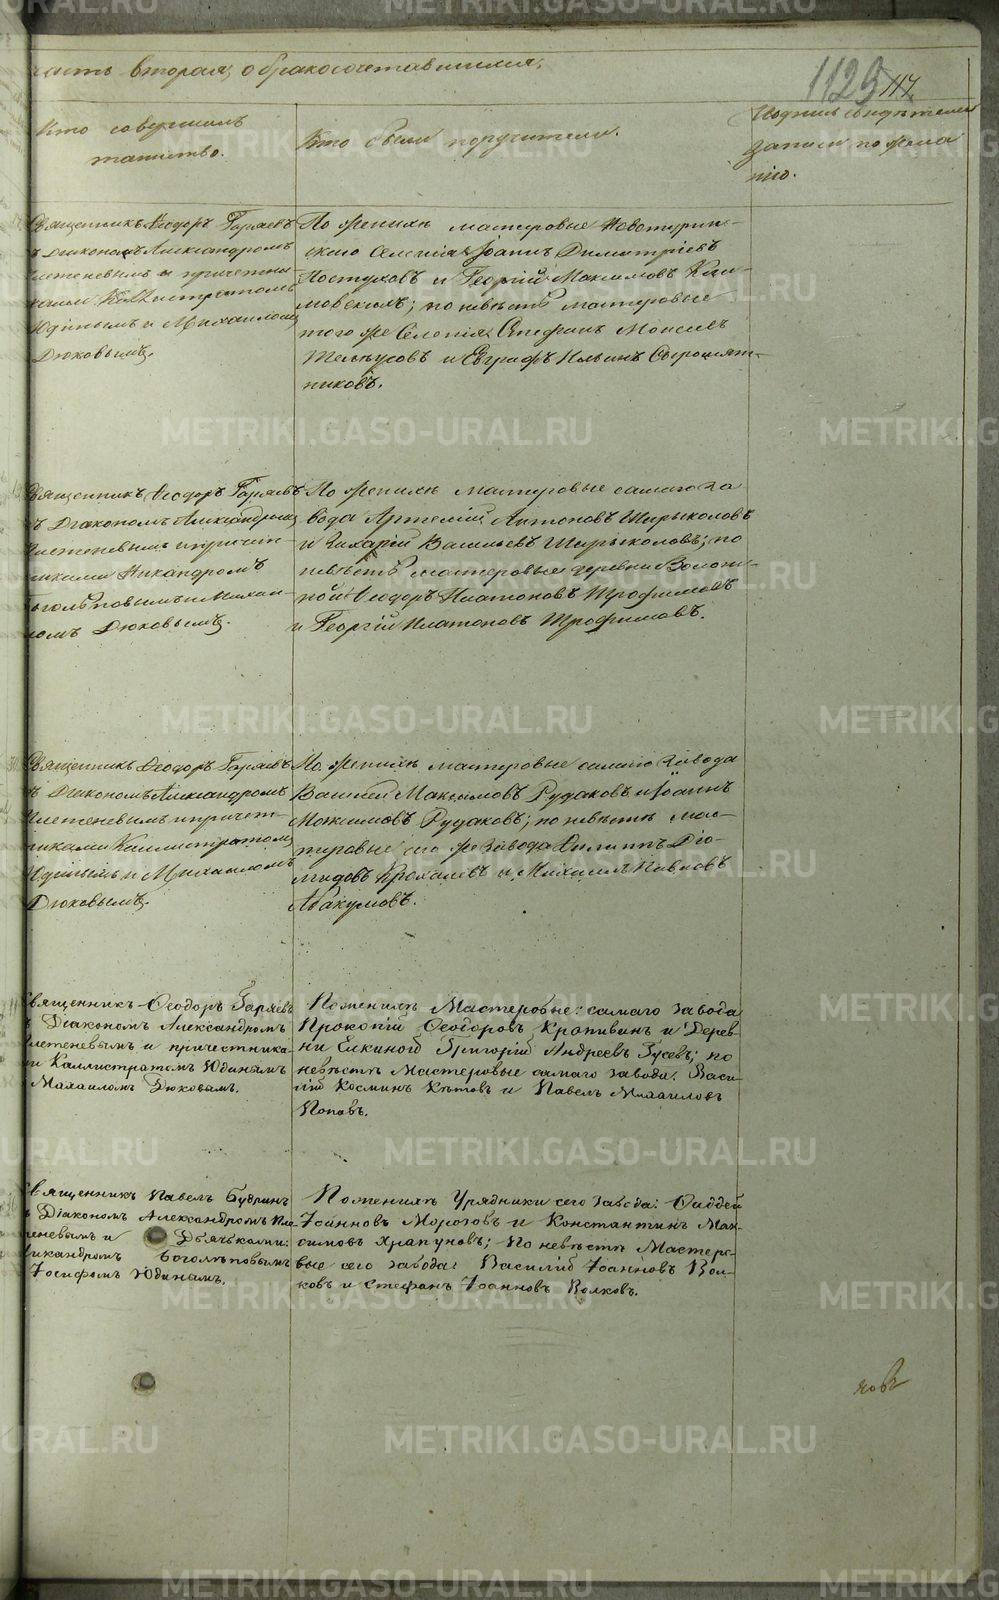 часть вторая, о бракосочетавшихся,
1129 114.
Кто совершалъ
таинство.
Кто были поручители.
Подпись свидѣтелей
записи по жела
нію.
Священникъ Ѳеодоръ Гаряевъ
ъ діакономъ Александромъ
летеневымъ и причетни
ками Каллистратомъ
Юдинымъ и Михаиломъ
Дюковымъ.
По женихѣ мастеровые Новотурин-
скаго селенія Іоаннъ Димитріевъ
Пастуховъ и Георгій Максимовъ Кли-
мовскихъ; по невѣстѣ мастеровые
того же селенія Стефанъ Моисеевъ
и Евграфъ Ильинъ Сыромят-
никовъ.
Священникъ Ѳеодоръ Гаряевъ
ъ Діакономъ Александромъ
летеневымъ и причет-
никами Никандромъ
Боголѣповымъ и Михаи-
ломъ Дюковымъ.
По женихѣ мастеровые самаго за
вода Артемій Антоновъ Ширыкаловъ
и Захарій Васильевъ Ширыкаловъ; по
невѣстѣ мастеровые деревни
Ѳеодоръ Платоновъ Трофимовъ
и Георгій Платоновъ Трофимовъ.
Священникъ Ѳеодоръ Гаряевъ
ъ Діакономъ Александромъ
летеневымъ и причет-
никами Каллистратомъ
Юдинымъ и Михаиломъ
Дюковымъ.
По женихѣ мастеровые самаго завода
Василій Максимовъ Рудаковъ и Іоаннъ
Максимовъ Рудаковъ; по невѣстѣ мас-
теровые сего же завода Филиппъ Діо-
мидовъ Крохалевъ и Михаилъ Павловъ
Абакумовъ.
Священникъ Ѳеодоръ Гаряевъ
ъ Діакономъ Александромъ
летеневымъ и причетника-
ми Каллистратомъ Юдинымъ
Михаиломъ Дюковымъ.
По женихѣ Мастеровые: самаго завода
Прокопій Ѳеодоровъ Крапивинъ и Дерев
ни Елкиной Григорій Андреевъ Гусевъ; по
невѣстѣ Мастеровые самаго завода: Васи-
лій Косминъ Кѣтовъ и Павелъ Михаиловъ
Поповъ.
Священникъ Павелъ Будринъ
ъ Діакономъ Александромъ Пле
теневымъ и Дьячками:
Никандромъ Боголѣповымъ
Іосифомъ Юдинымъ.
По женихѣ Урядники сего завода: Ѳаддей
Іоанновъ Морозовъ и Константинъ Мак-
симовъ Храпуновъ; По невѣстѣ Мастеро-
вые сего завода: Василій Іоанновъ Вол-
ковъ и Стефанъ Іоанновъ Волковъ.
ковъ
METRIKI.GASO-URAL.RU